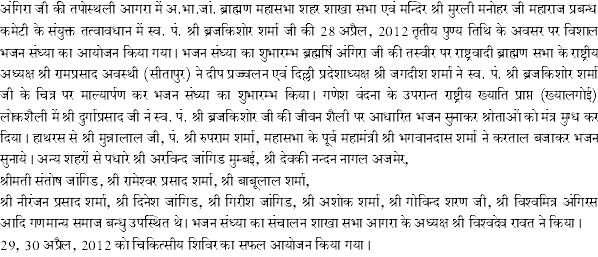 अंगिरा जी की तपोस्थली आगरा में अ.भा.जां. ब्राह्मण महासभा शहर शाखा सभा एवं मन्दिर श्री मुरली मनोहर जी महाराज प्रबन्ध
कमेटी के संयुक्त तत्वावधान में स्व. पं. श्री ब्रजकिशोर शर्मा जी की 28 अप्रैल, 2012 तृतीय पुण्य तिथि के अवसर पर विशाल
भजन संध्या का आयोजन किया गया। भजन संध्या का शुभारम्भ ब्रह्मर्षि अंगिरा जी की तस्वीर पर राष्ट्रवादी ब्राह्मण सभा के राष्ट्रीय
अध्यक्ष श्री रामप्रसाद अवस्थी (सीतापुर) ने दीप प्रज्ज्वलन एवं दिल्ली प्रदेशाध्यक्ष श्री जगदीश शर्मा ने स्व. पं. श्री ब्रजकिशोर शर्मा
जी के चित्र पर माल्यार्पण कर भजन संध्या का शुभारम्भ किया। गणेश वंदना के उपरान्त राष्ट्रीय ख्याति प्राप्त (ख्यालगोई)
लोकशैली में श्री दुर्गाप्रसाद जी नं स्व. पं. श्री ब्रजकिशोर जी की जीवन शैली पर आधारित भजन सुनाकर श्रोताओं को मंत्र मुग्ध कर
दिया। हाथरस से श्री मुन्नालाल जी, पं. श्री रुपराम शर्मा, महासभा के पूर्व महामंत्री श्री भगवानदास शर्मा ने करताल बजाकर भजन
सुनाये। अन्य शहरों से पधारे श्री अरविन्द जांगिड मुम्बई, श्री देवकी नन्दन नागल अजमेर,
श्रीमती संतोष जांगिड, श्री रामेश्वर प्रसाद शर्मा, श्री बाबूलाल शर्मा,
श्री नीरंजन प्रसाद शर्मा, श्री दिनेश जांगिड, श्री गिरीश जांगिड, श्री अशोक शर्मा, श्री गोविन्द शरण जी, श्री विश्वमित्र अंगिरस
आदि गणमान्य समाज बन्धु उपस्थित थे। भजन संध्या का संचालन शाखा सभा आगरा के अध्यक्ष श्री विश्वदेव रावत ने किया।
29, 30 अप्रैल, 2012 को चिकित्सीय शिविर का सफल आयोजन किया गया।